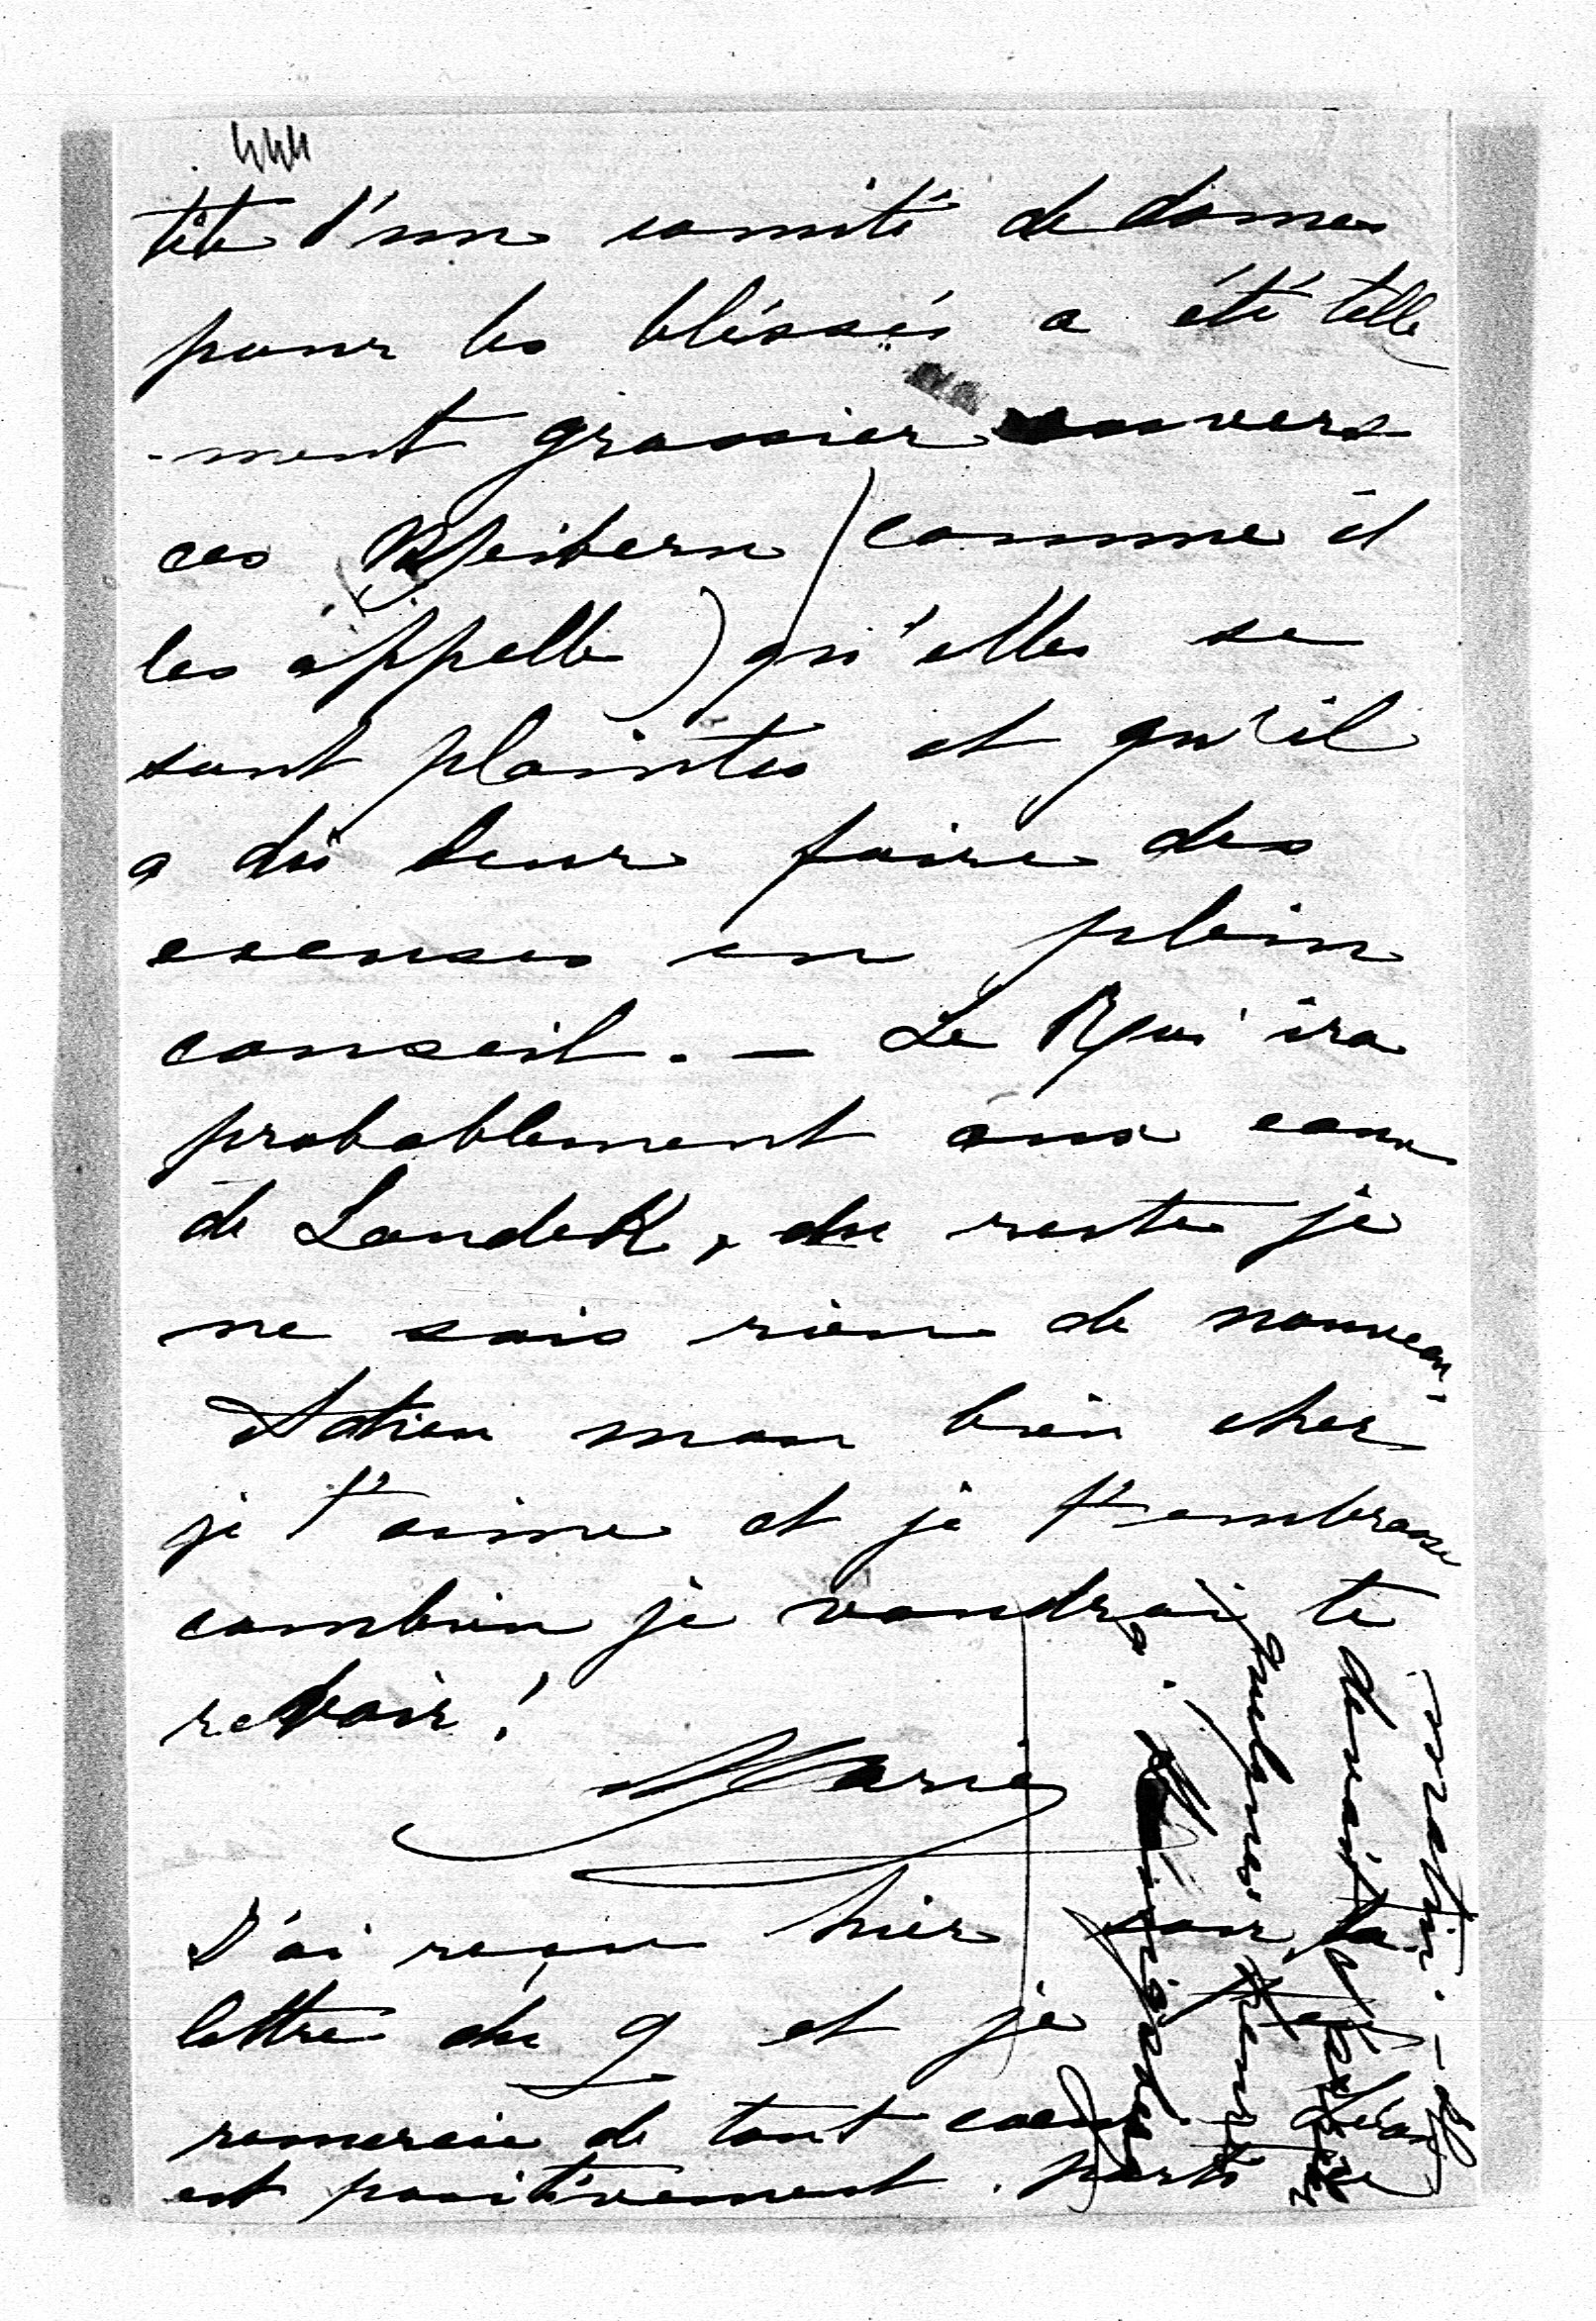 444
tête d'un comité de dames
pour les bléssés a été telle
-ment grossier envers
ces Weibern (comme il
les appelle) qu'elles se
sont plaintes et qu'il
a dû leur faire des
excuses en plein
conseil. — Le Roi ira
probablement aux eaux
de Landek, du reste je
ne sais rien de nouveau.
Adieu mon bien cher
je t'aime et je t'embrasse
combien je voudrai te
revoir!
Marie
J'ai reçu hier soir ta
lettre du 9 et je t'en
remercie de tout coeur. Léon
est positivement parti ce
matin. — Il
devait
quelques